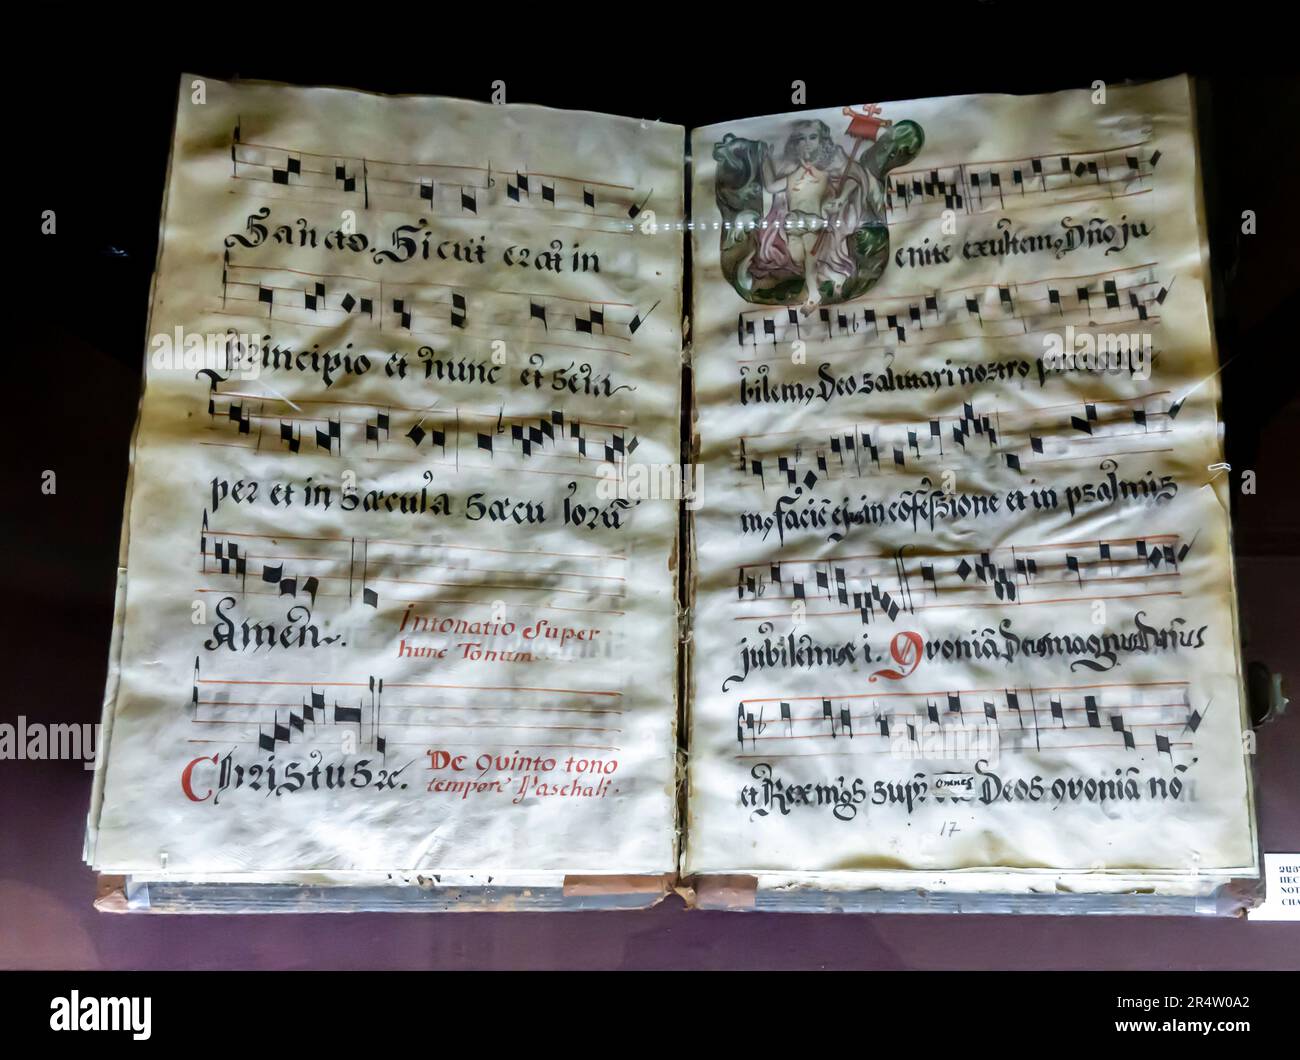 Sancto. Sicut erat in
Principio et nunc et sem
per et in sæcula sæcu lorũ
Amen.
Intonatio super
hunc Tonum.
Christus &c.
De quinto tono
tempore Paschali.
enite exultemꝰ Dño ju
bilemꝰ Deo salutari nostro præoccupe
mꝰ faciẽ ejꝰ in cõfessione et in psalmis
jubilemꝰ ei. Quoniã Deus magnus Dñus
et Rex mgꝰs supr omnes Deos quoniã nõ
17
alamy
Image ID: 2R4W0A2
www.alamy.com